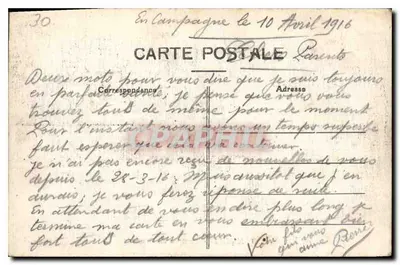 30
En Campagne le 10 Avril 1916
CARTE POSTALE
Chers Parents
Deux mots pour vous dire que je suis toujours
Correspondance
Adresse
en parfaite santé, je pense que vous vous
trouvez tous de même pour le moment
Pour l'instant nous avons un temps superbe
faut espérer que
je n'ai pas encore reçu de nouvelles de vous
depuis le 28-3-16. Mais aussitot que j'en
aurais, je vous ferez réponse de suite.
En attendant de vous en dire plus long je
termine ma carte en vous embrassant bien
fort tous de tout cœur.
Votre fils
qui vous
aime René